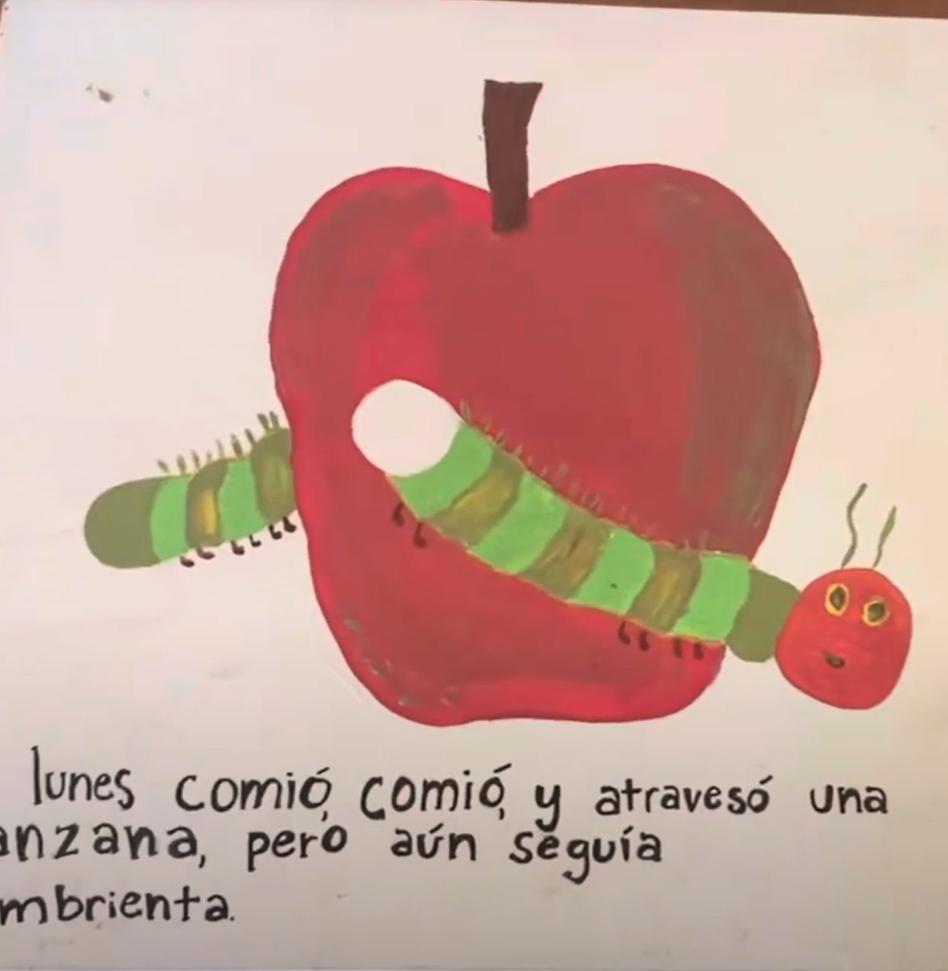 lunes comió, comió, y atravesó una
anzana, pero aún seguía
mbrienta.